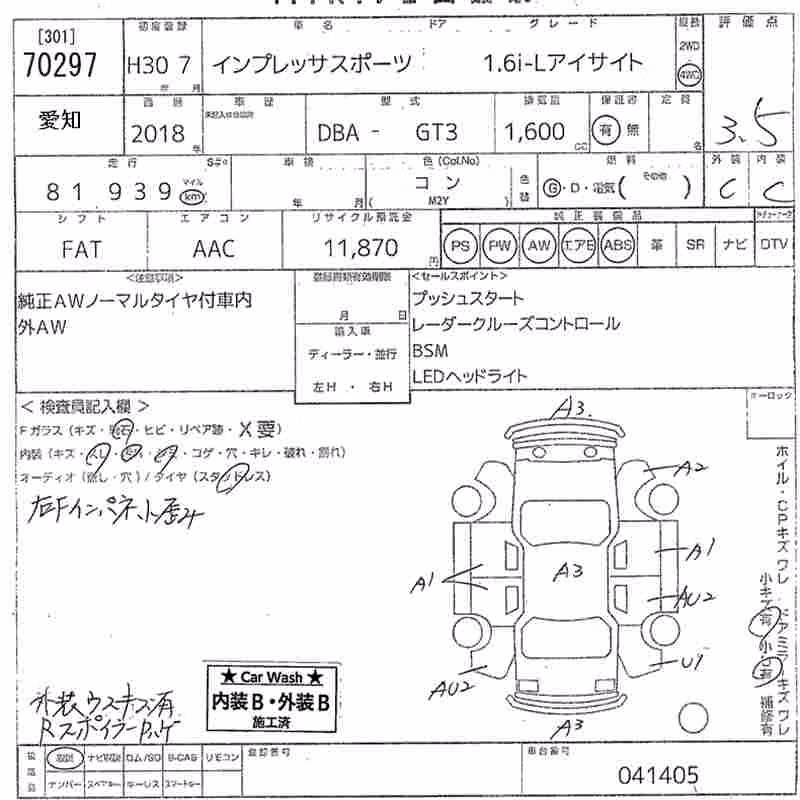 [301]
70297
初度登録
車名
ドア
グレード
評価点
H30 7
インプレッサスポーツ
1.6i-Lアイサイト
2WD
4WD
年 月
愛知
車歴
型式
排気量
保証書
定員
2018
年
DBA - GT3
1,600
CC
有 無
名
3.5
走行
車検
色(Col.No)
燃料
外装
内装
81 939
マイル
km
年 月
コン
M2Y
色替
G・D・電気( その他 )
C C
シフト
エアコン
リサイクル預託金
純正装備品
FAT
AAC
11,870
円
PS PW AW エアB ABS 革 SR ナビ DTV
純正AWノーマルタイヤ付車内
外AW
月 日
輸入車
ディーラー・並行
左H ・ 右H
<セールスポイント>
プッシュスタート
レーダークルーズコントロール
BSM
LEDヘッドライト
<検査員記入欄>
Fガラス(キズ・飛石・ヒビ・リペア跡・X要)
内装(キズ・スレ・汚れ・ヒタ・コゲ・穴・キレ・破れ・割れ)
オーディオ(無し・穴)/タイヤ(スタッドレス)
右Fインパネット歪み
A3
A2
A1
A3
A1
AU2
AU2
U1
A3
ホイル・CPキズワレ
小キズ有
ドアミラーキズワレ
補修有
外装ウスキズ有
Rスポイラーハゲ
★ Car Wash ★
内装B・外装B
施工済
取説 ナビ取説 ロム/SD B-CAS リモコン
ナンバー スペアキー キーレス スマートキー
登録番号
車台番号
041405